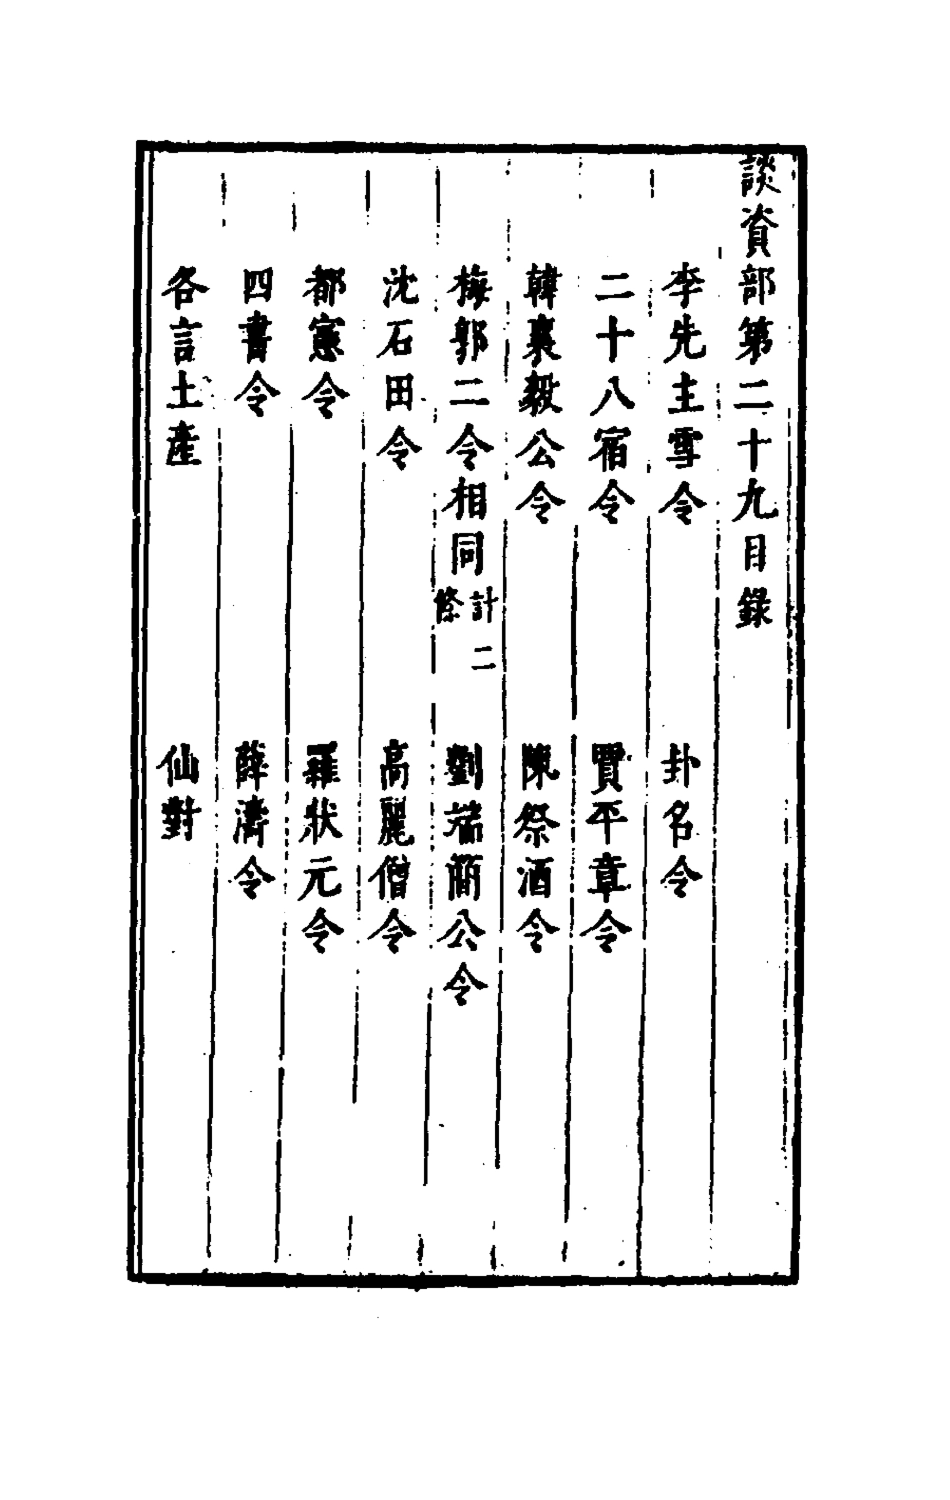 談資部第二十九目錄
李先主雪令 卦名令
二十八宿令 賈平章令
韓襄毅公令 陳祭酒令
梅郭二令相同計二條 劉端簡公令
沈石田令 高麗僧令
都憲令 羅狀元令
四書令 薛濤令
各言土產 仙對